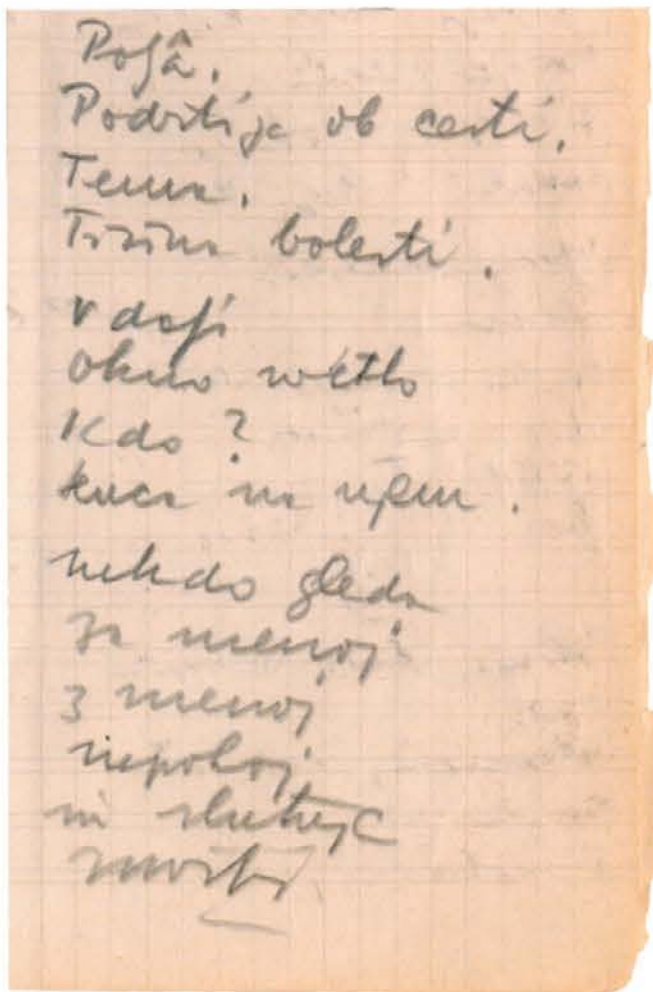 Poljâ.
Podrtija ob cesti.
Tema.
Tišina bolesti.
v dalji
okno svetlo
Kdo?
senca na njem.
nekdo gleda
za menoj
z menoj
nepokoj
in slutnja
smrti